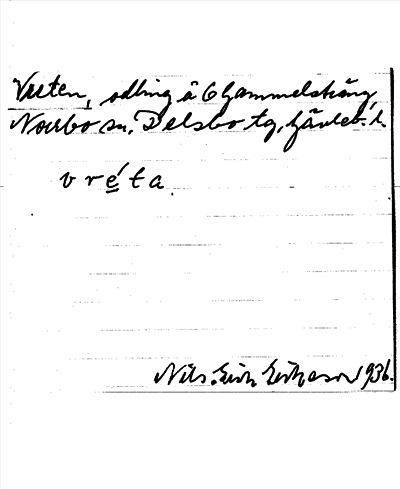 Vreten, odling å 6 Gammelsträng,
Norrbo sn, Delsbo tg, Gävleb. l.
v r é t a
Nils Erik Eriksson 1936.